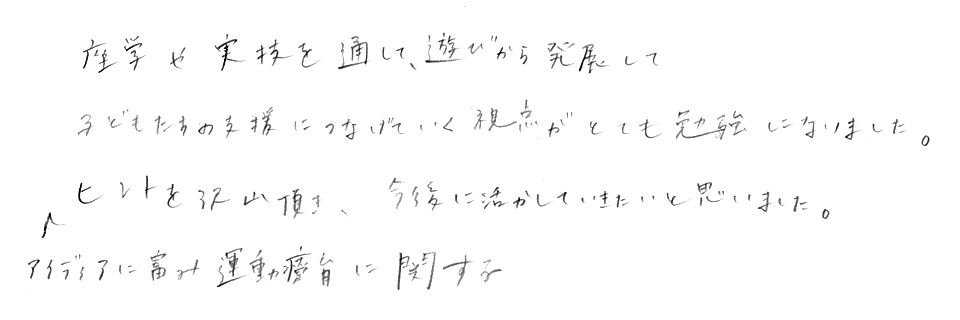 座学や実技を通して、遊びから発展して
子どもたちの支援につなげていく視点がとても勉強になりました。
ヒントを沢山頂き、今後に活かしていきたいと思いました。
アイディアに富み運動療育に関する